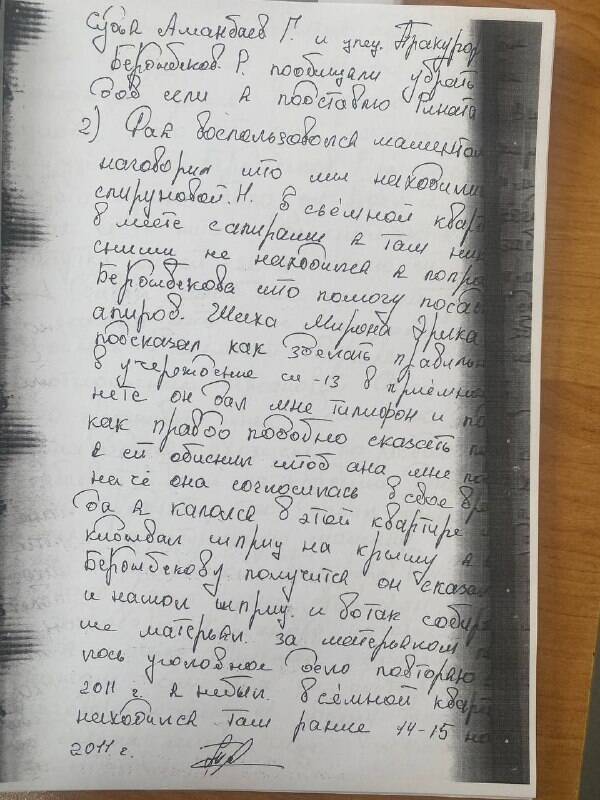 Судья Аманбаев Г. и упец. Пракурор
Бербмбеков. Р. пообищали убрать
если я подставлю Рината
2) Как воспользовался
наговорил што мы находили
спируновой. Н. в съёмной кварт
в месте с апирами а там ник
сними не находился я попро
што помогу поса
апиров. Мирона Эрика
подсказал как зделать правильн
в учереждение сц-13 в приёмна
нете он дал мне тилифон и по
как правдо подобно сказать
я ей обиснил штоб ана мне
на чё она согласилась в свое вре
да я кололся в этой квартире
шприц на крышу а
получится он сказал
и нашол шприц. и вотак собир
ше матерьял. за матерьялом
лось уголовное дело повторяю
2011 г. я небыл в сёмной кварт
находился там ранше 14-15 но
2011 г.